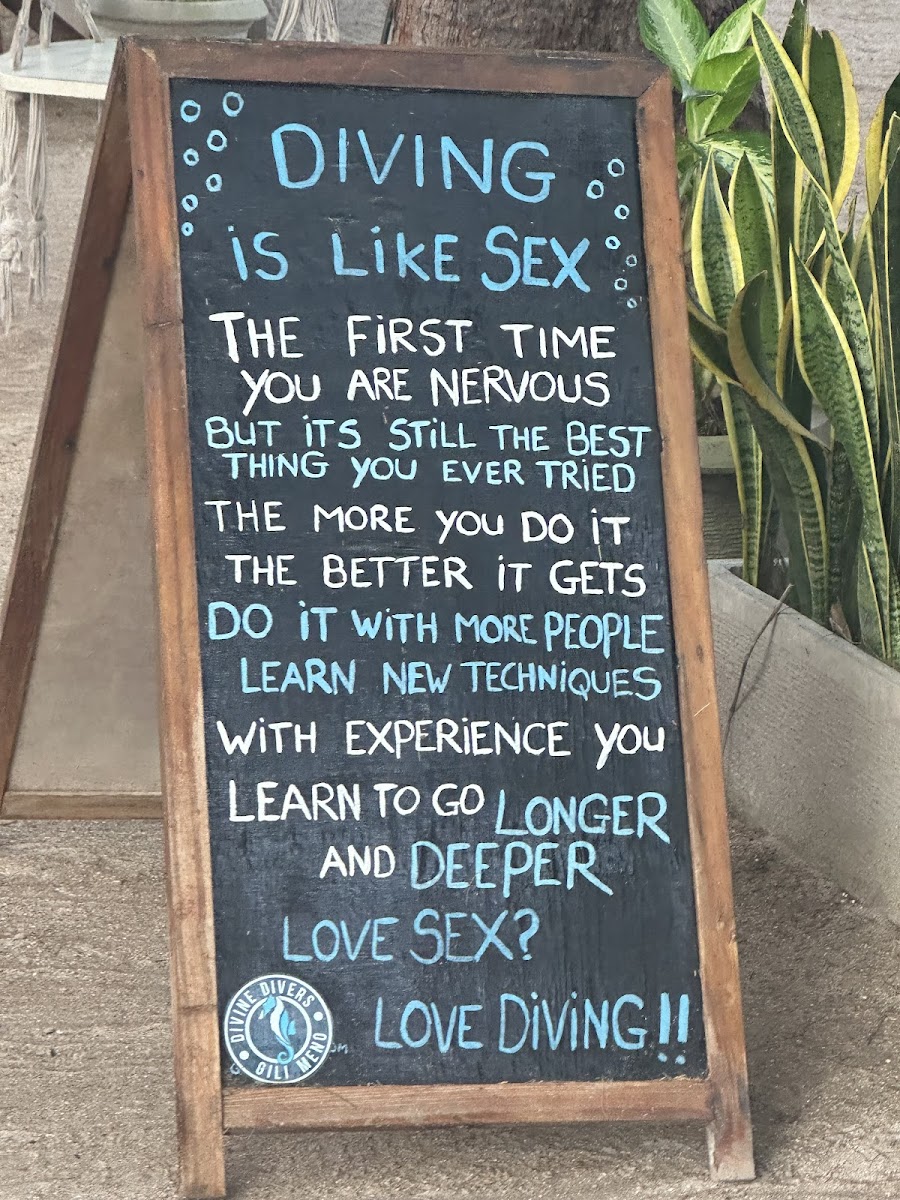 DIVING
is LiKE SEX
THE FiRST TIME
YOU ARE NERVOUS
BUT iTS STiLL THE BEST
THING YOU EVER TRiED
THE MORE YOU DO iT
THE BETTER iT GETS
DO iT WiTH MORE PEOPLE
LEARN NEW TECHNiQUES
WiTH EXPERiENCE YOU
LEARN TO GO LONGER
AND DEEPER
LOVE SEX?
LOVE DiViNG!!
DIVINE DIVERS
GILI MENO